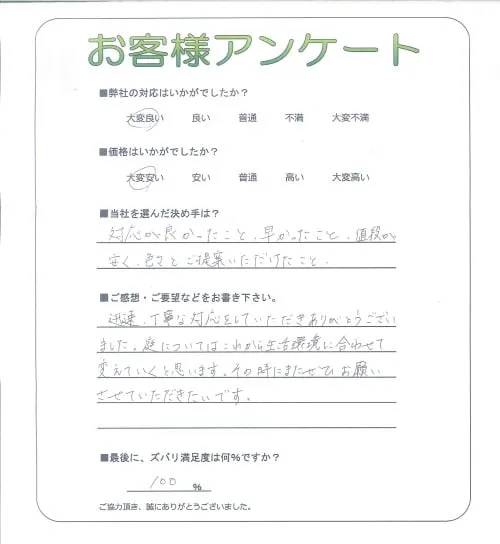 お客様アンケート
■弊社の対応はいかがでしたか？
大変良い 良い 普通 不満 大変不満
■価格はいかがでしたか？
大変安い 安い 普通 高い 大変高い
■当社を選んだ決め手は？
対応が良かったこと、早かったこと、値段が
安く、色々とご提案いただけたこと、
■ご感想・ご要望などをお書き下さい。
迅速、丁寧な対応をしていただきありがとうござい
ました。庭についてはこれから生活環境に合わせて
変えていくと思います。その時にまたぜひお願い
させていただきたいです。
■最後に、ズバリ満足度は何％ですか？
100 ％
ご協力頂き、誠にありがとうございました。